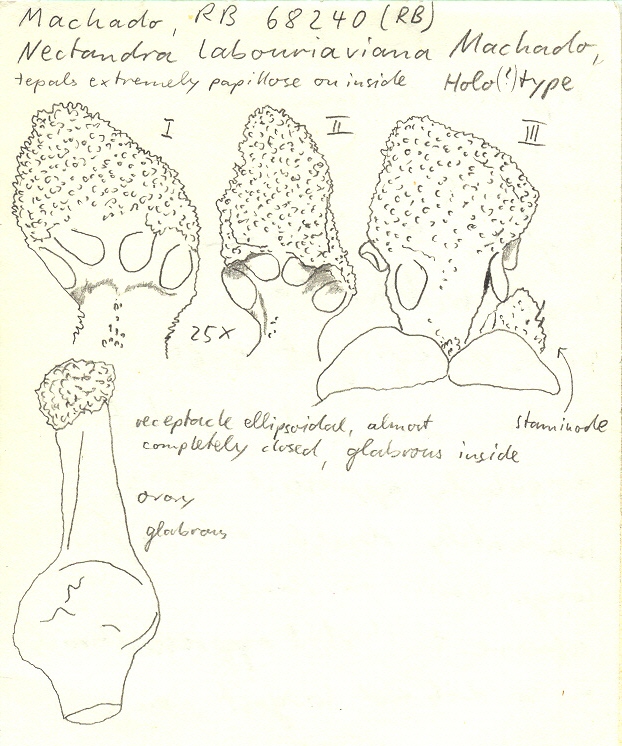 Machado, RB 68240 (RB)
Nectandra labouriaviana Machado,
tepals extremely papillose on inside Holo(!)type
I
II
III
25x
staminode
receptacle ellipsoidal, almost
completely closed, glabrous inside
ovary
glabrous